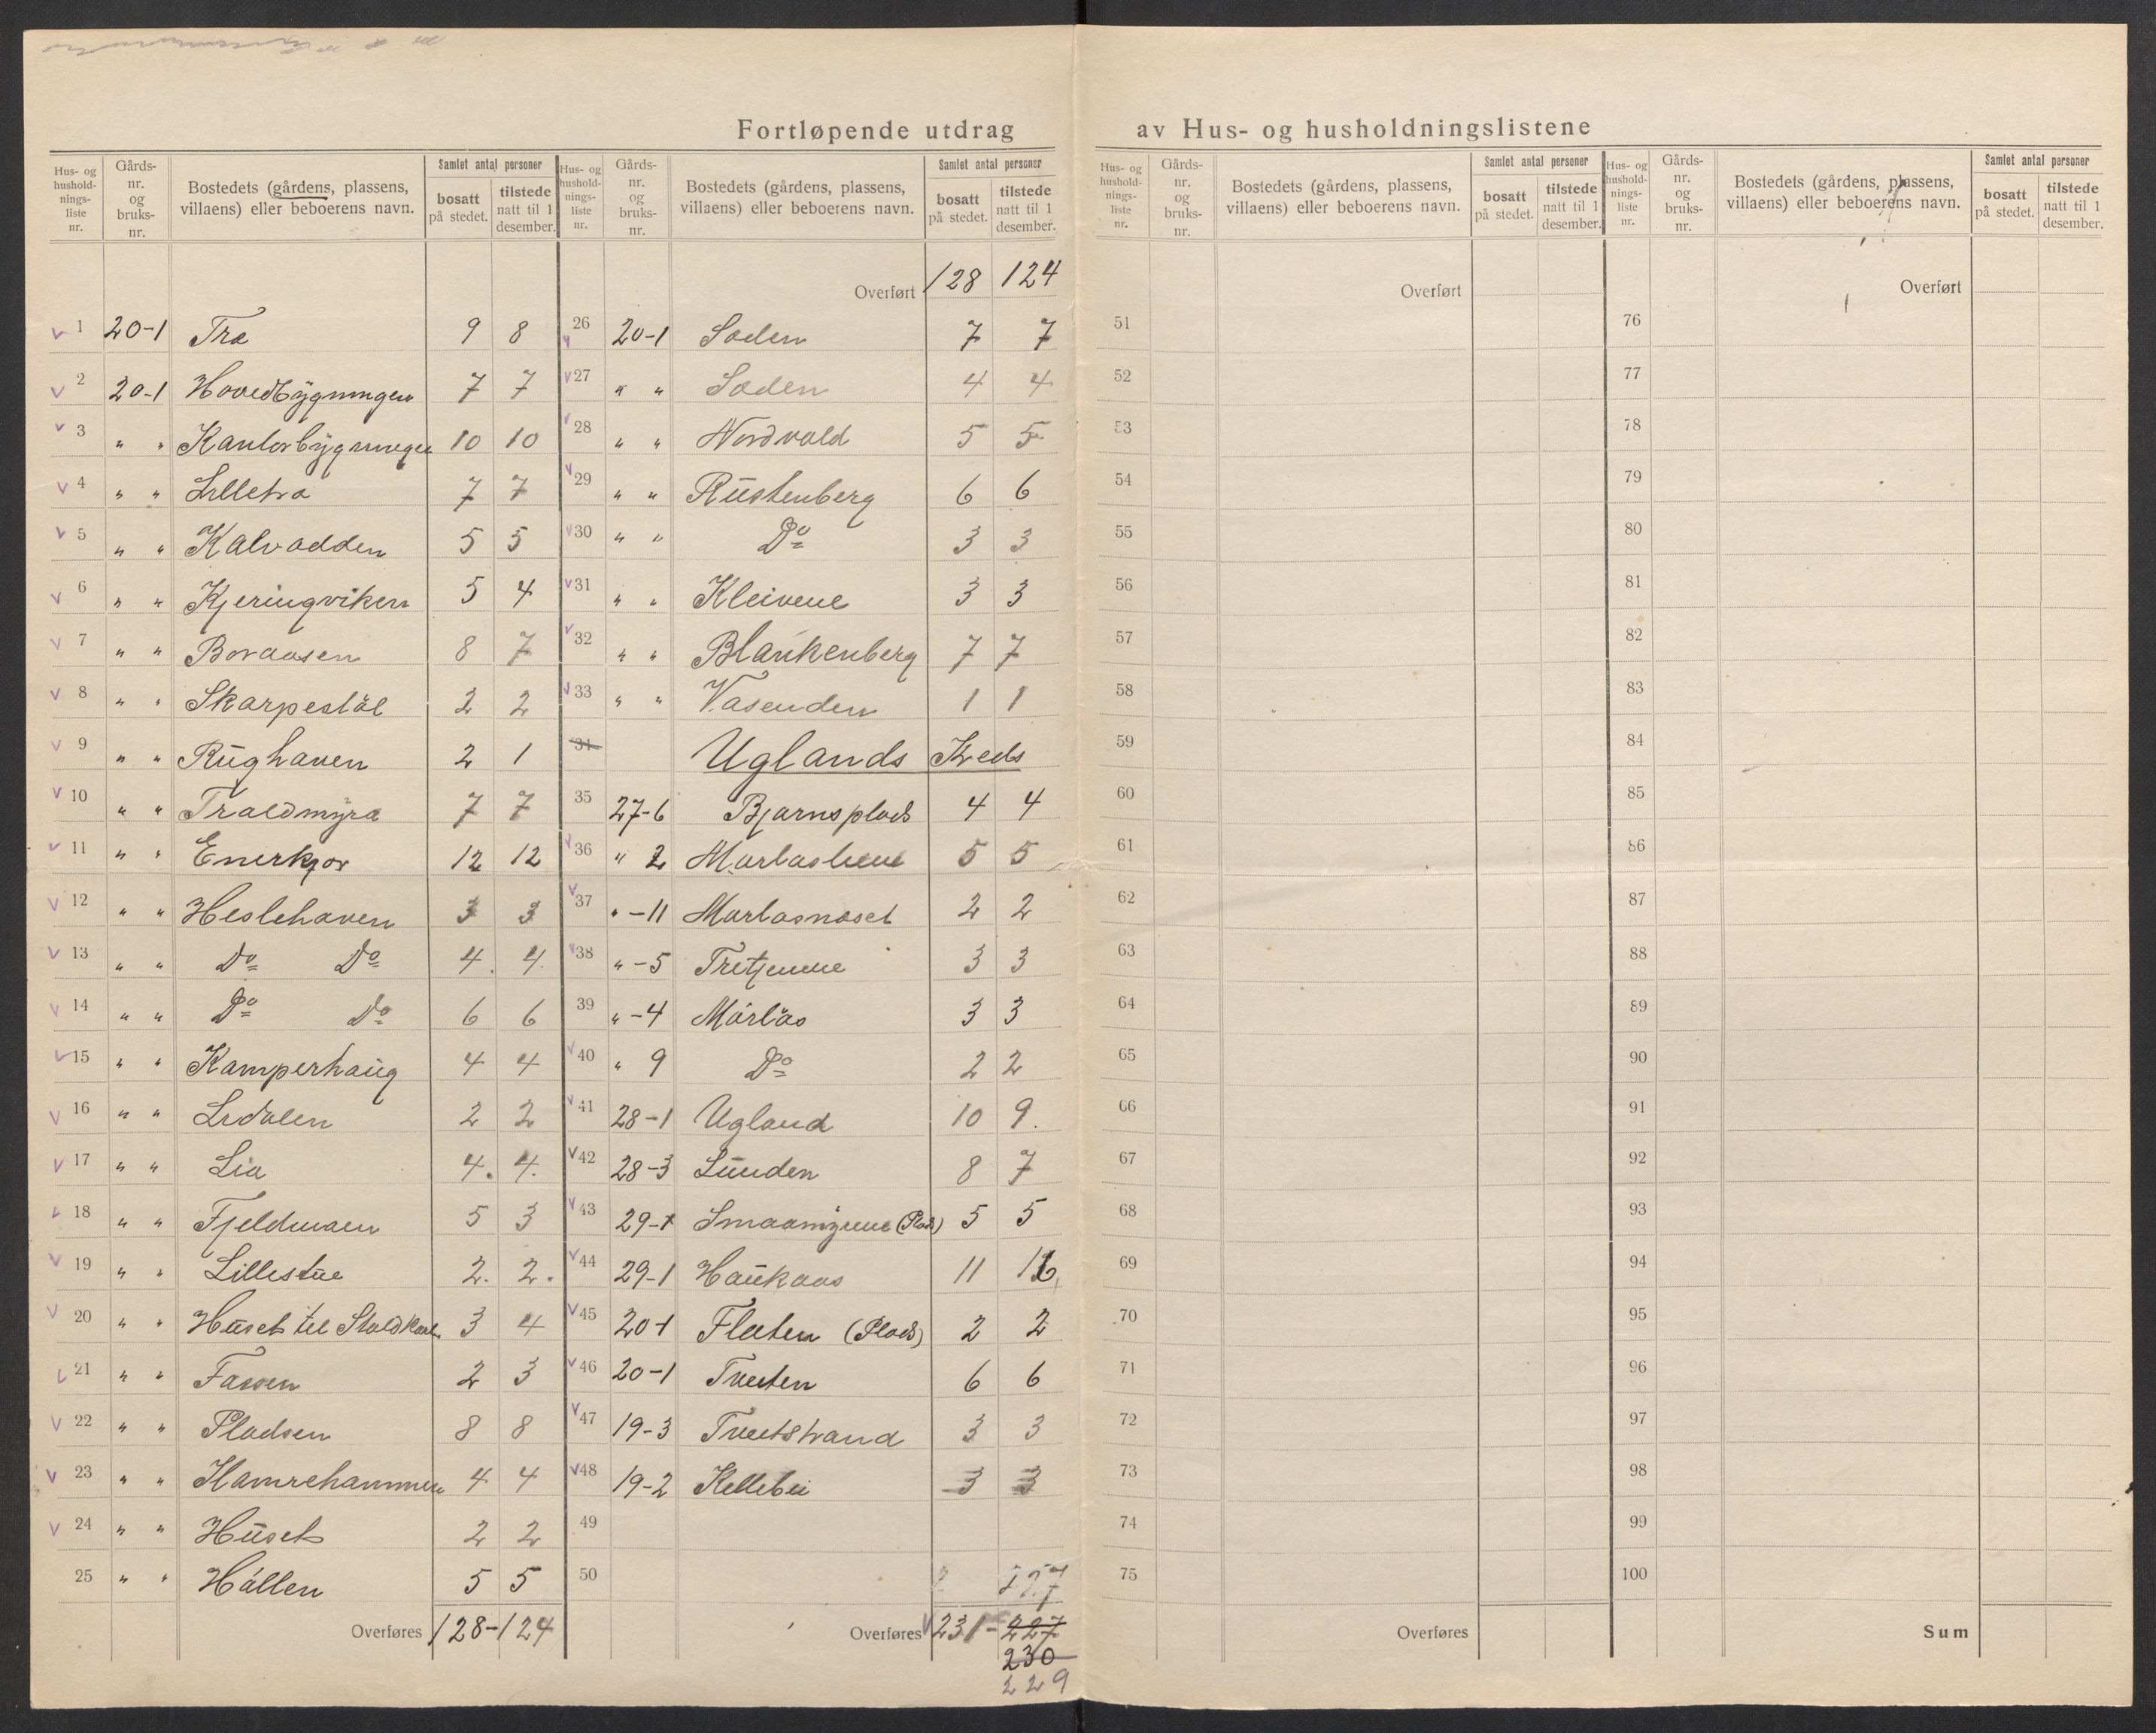 Fortløpende utdrag av Hus- og husholdningslistene
Hus- og hushold-nings-liste nr. | Gårds-nr. og bruks-nr. | Bostedets (gårdens, plassens, villaens) eller beboerens navn. | Samlet antal personer | bosatt på stedet. | tilstede natt til 1 desember.
Hus- og hushold-nings-liste nr. | Gårds-nr. og bruks-nr. | Bostedets (gårdens, plassens, villaens) eller beboerens navn. | Samlet antal personer | bosatt på stedet. | tilstede natt til 1 desember.
1 20-1 Tra 9 8
2 20-1 Hovedbygningen 7 7
3 " " Kantorbygningen 10 10
4 " " Lilletra 7 7
5 " " Kalvodden 5 5
6 " " Kjeringviken 5 4
7 " " Boraasen 8 7
8 " " Skarpestöl 2 2
9 " " Rughaven 2 1
10 " " Traldmyra 7 7
11 " " Enerkjær 12 12
12 " " Heslehaven 3 3
13 " " Do Do 4. 4.
14 " " Do Do 6 6
15 " " Kamperhaug 4 4
16 " " Lidalen 2 2
17 " " Lia 4. 4.
18 " " Fjeldmoen 5 3
19 " " Lillestue 2. 2.
20 " " Huset til Staldkarl 3 4
21 " " Fassen 2 3
22 " " Pladsen 8 8
23 " " Hamrehammeren 4 4
24 " " Huset 2 2
25 " " Hållen 5 5
Overføres 128-124
Overført 128 124
26 20-1 Soden 7 7
27 " " Soden 4 4
28 " " Nordvold 5 5
29 " " Rustenberg 6 6
30 " " Do 3 3
31 " " Kleivene 3 3
32 " " Blankenberg 7 7
33 " " Vasenden 1 1
34 Uglands Kreds
35 27-6 Bjørnsplads 4 4
36 " 2 5 5
37 "-11 Morlåsnæset 2 2
38 "-5 Tretjenne 3 3
39 "-4 Mårlås 3 3
40 " 9 Do 2 2
41 28-1 Ugland 10 9.
42 28-3 Lunden 8 7
43 29-1 Smaamyrene (Plads) 5 5
44 29-1 Haukaas 11
45 20-1 Flaten (Plads) 2 2
46 20-1 Tveiten 6 6
47 19-3 Tveitstrand 3 3
48 19-2 Kellebei 3 3
49
50 227
Overføres 231-227
230
229
Hus- og hushold-nings-liste nr. | Gårds-nr. og bruks-nr. | Bostedets (gårdens, plassens, villaens) eller beboerens navn. | Samlet antal personer | bosatt på stedet. | tilstede natt til 1 desember.
Overført
51
52
53
54
55
56
57
58
59
60
61
62
63
64
65
66
67
68
69
70
71
72
73
74
75
Overføres
Hus- og hushold-nings-liste nr. | Gårds-nr. og bruks-nr. | Bostedets (gårdens, plassens, villaens) eller beboerens navn. | Samlet antal personer | bosatt på stedet. | tilstede natt til 1 desember.
Overført
76
77
78
79
80
81
82
83
84
85
86
87
88
89
90
91
92
93
94
95
96
97
98
99
100
Sum